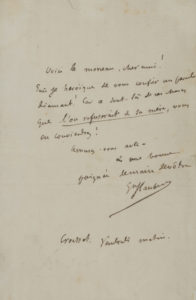 Voici le morceau, cher ami!
Suis-je héroïque de vous confier un pareil
diamant! Car ce sont là de ces choses
que l'on refuserait à sa mère, vous
en conviendrez!
à une bonne
poignée de main
Gve Flaubert
Croisset, Vendredi matin.